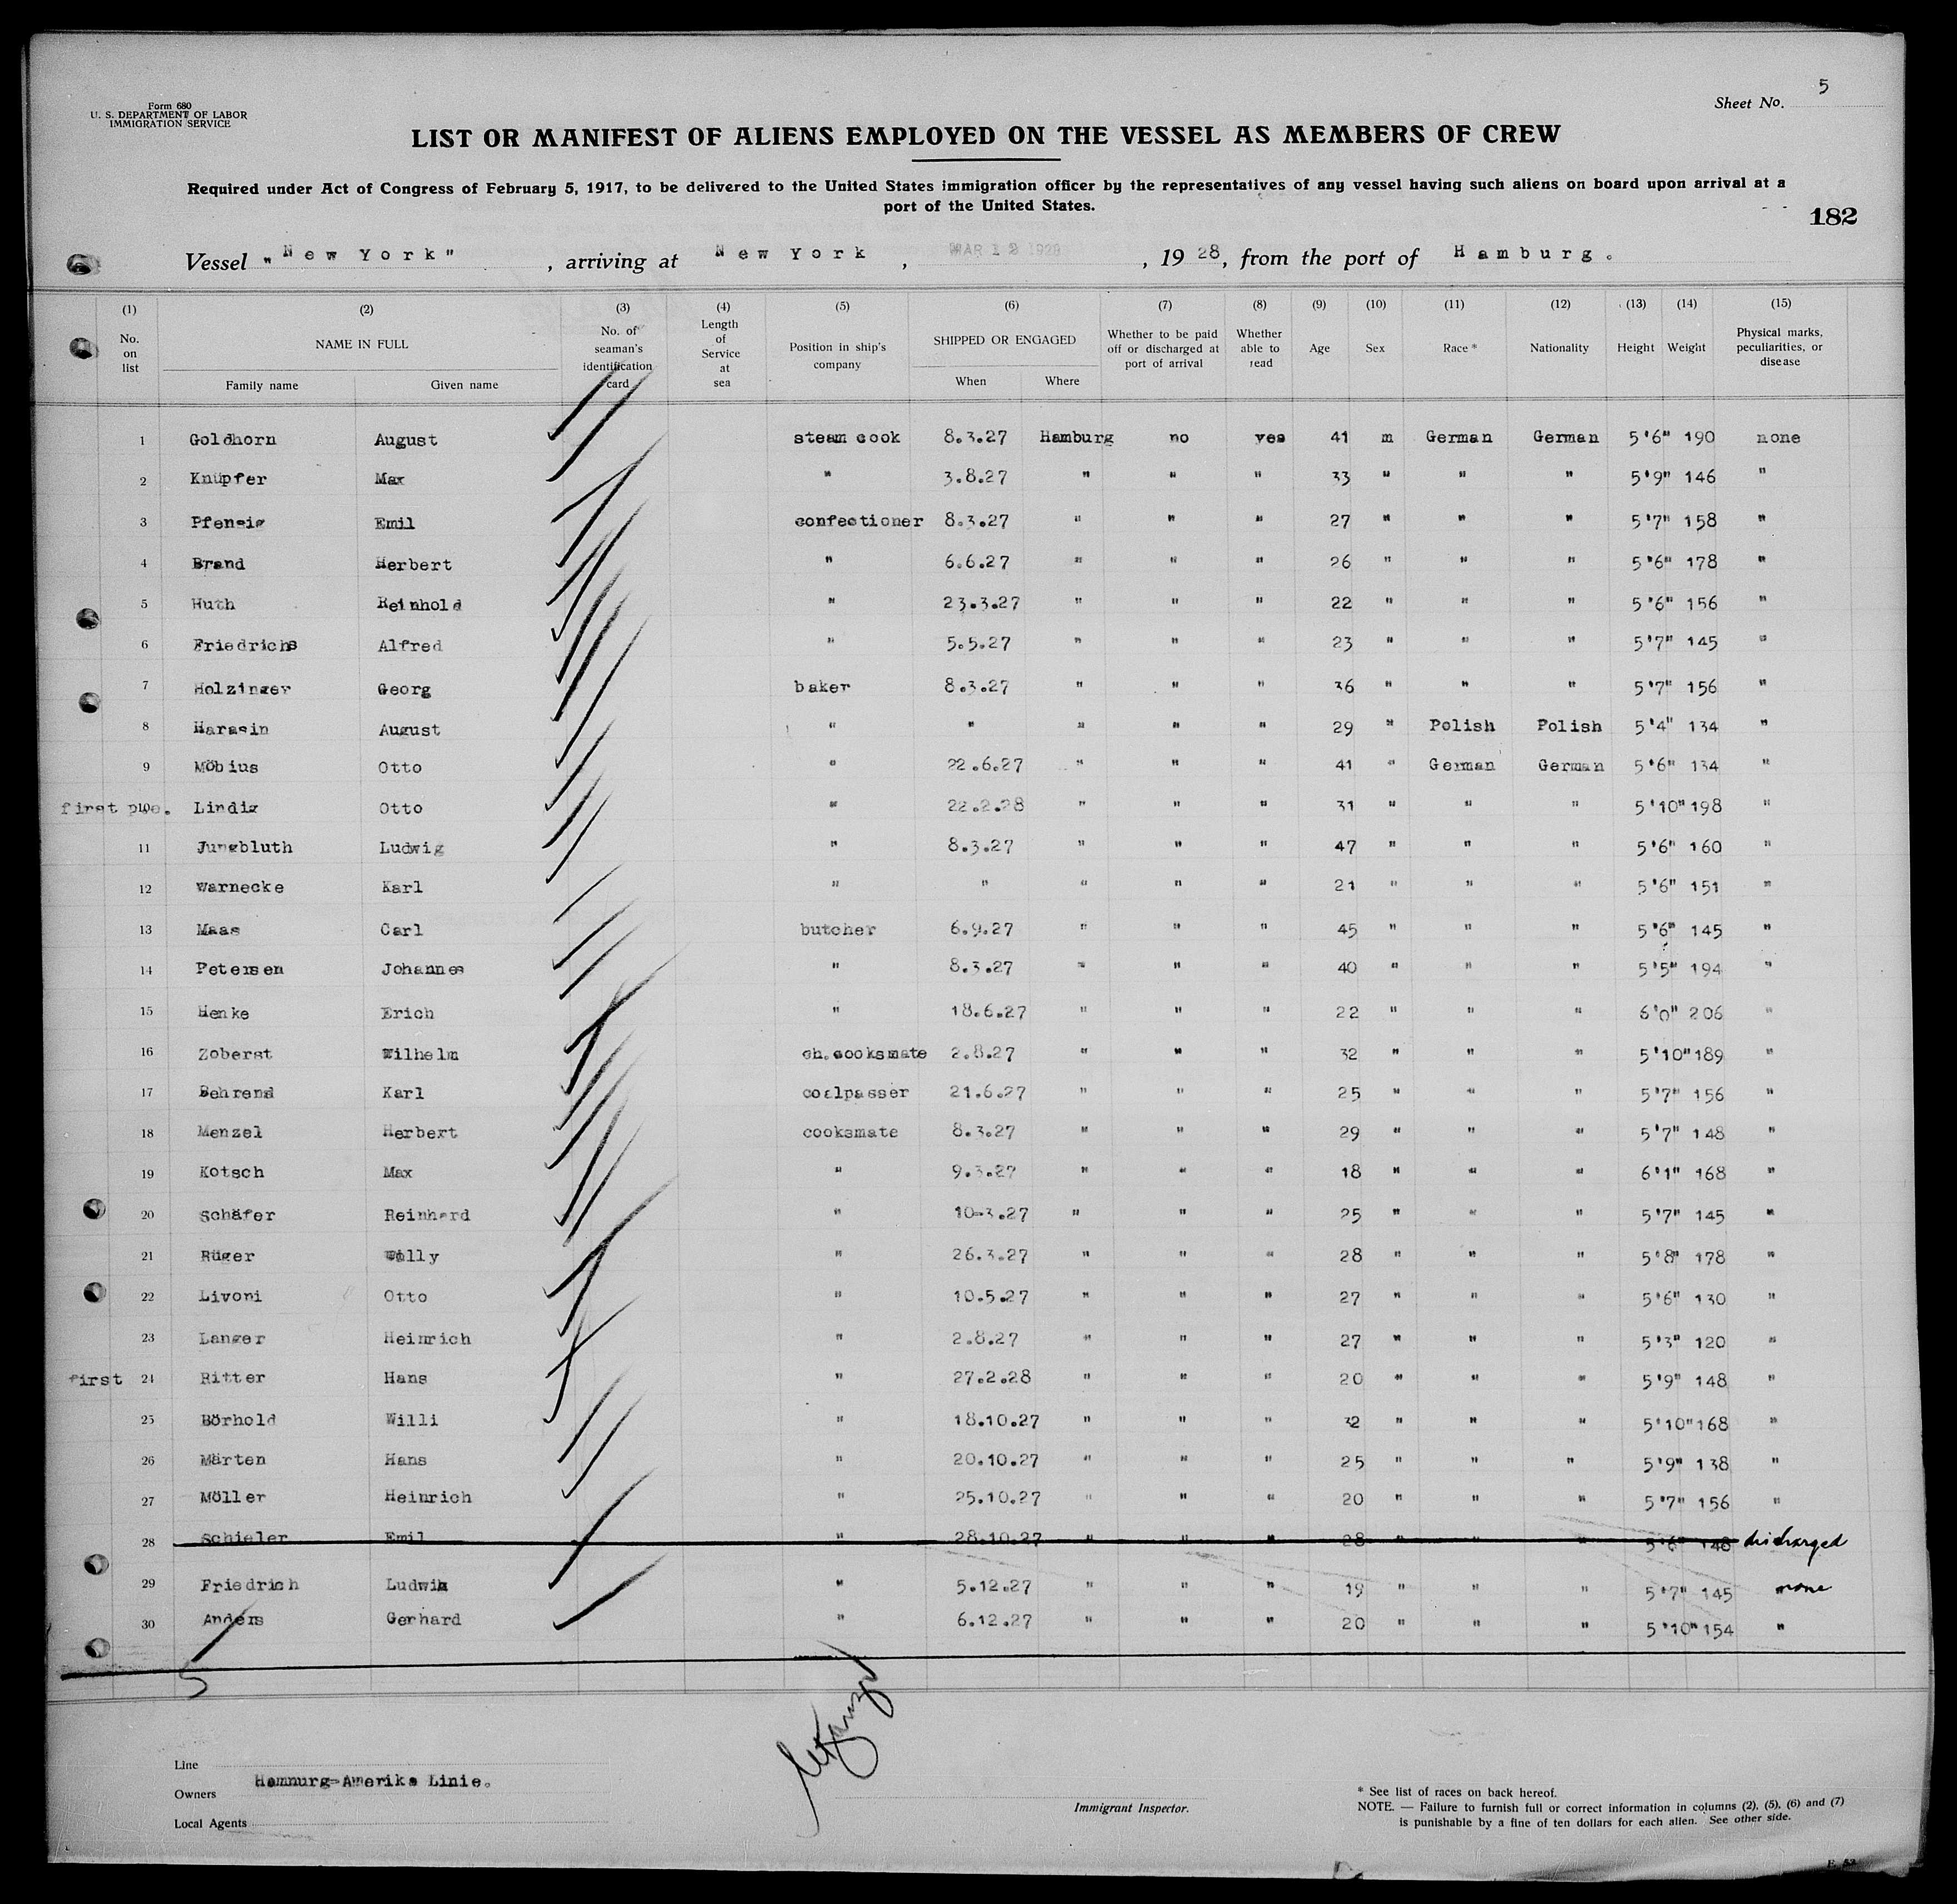 Form 680
U. S. DEPARTMENT OF LABOR
IMMIGRATION SERVICE
5
Sheet No.
LIST OR MANIFEST OF ALIENS EMPLOYED ON THE VESSEL AS MEMBERS OF CREW
Required under Act of Congress of February 5, 1917, to be delivered to the United States immigration officer by the representatives of any vessel having such aliens on board upon arrival at a
port of the United States.
182
Vessel "New York" , arriving at New York , MAR 12 1928 , 19 28, from the port of Hamburg.
(1) (2) (3) (4) (5) (6) (7) (8) (9) (10) (11) (12) (13) (14) (15)
No. on list NAME IN FULL Family name Given name No. of seaman's identification card Length of Service at sea Position in ship's company SHIPPED OR ENGAGED When Where Whether to be paid off or discharged at port of arrival Whether able to read Age Sex Race * Nationality Height Weight Physical marks, peculiarities, or disease
1 Goldhorn August steam cook 8.3.27 Hamburg no yes 41 m German German 5'6" 190 none
2 Knüpfer Max " 3.8.27 " " " 33 " " " 5'9" 146 "
3 Pfensig Emil confectioner 8.3.27 " " " 27 " " " 5'7" 158 "
4 Brand Herbert " 6.6.27 " " " 26 " " " 5'6" 178 "
5 Huth Reinhold " 23.3.27 " " " 22 " " " 5'6" 156 "
6 Friedrichs Alfred " 5.5.27 " " " 23 " " " 5'7" 145 "
7 Holzinger Georg baker 8.3.27 " " " 36 " " " 5'7" 156 "
8 Harasin August " " " " " 29 " Polish Polish 5'4" 134 "
9 Möbius Otto " 22.6.27 " " " 41 " German German 5'6" 134 "
first 10 Lindig Otto " 22.2.28 " " " 31 " " " 5'10" 198 "
11 Jungbluth Ludwig " 8.3.27 " " " 47 " " " 5'6" 160 "
12 Warnecke Karl " " " " " 21 " " " 5'6" 151 "
13 Maas Carl butcher 6.9.27 " " " 45 " " " 5'6" 145 "
14 Petersen Johannes " 8.3.27 " " " 40 " " " 5'5" 194 "
15 Henke Erich " 18.6.27 " " " 22 " " " 6'0" 206 "
16 Zoberst Wilhelm ch.cooksmate 2.8.27 " " " 32 " " " 5'10" 189 "
17 Behrend Karl coalpasser 21.6.27 " " " 25 " " " 5'7" 156 "
18 Menzel Herbert cooksmate 8.3.27 " " " 29 " " " 5'7" 148 "
19 Kotsch Max " 9.3.27 " " " 18 " " " 6'1" 168 "
20 Schäfer Reinhard " 10-3.27 " " " 25 " " " 5'7" 145 "
21 Rüger Willy " 26.3.27 " " " 28 " " " 5'8" 178 "
22 Livoni Otto " 10.5.27 " " " 27 " " " 5'6" 130 "
23 Langer Heinrich " 2.8.27 " " " 27 " " " 5'3" 120 "
first 24 Ritter Hans " 27.2.28 " " " 20 " " " 5'9" 148 "
25 Börhold Willi " 18.10.27 " " " 32 " " " 5'10" 168 "
26 Märten Hans " 20.10.27 " " " 25 " " " 5'9" 138 "
27 Möller Heinrich " 25.10.27 " " " 20 " " " 5'7" 156 "
28 Schieler Emil " 28.10.27 " " " 28 " " " 5'6" 148 discharged
29 Friedrich Ludwik " 5.12.27 " " " 19 " " " 5'7" 145 none
30 Anders Gerhard " 6.12.27 " " " 20 " " " 5'10" 154 "
5
Line
Hamnurg-Amerika Linie.
Owners
Local Agents
Immigrant Inspector.
* See list of races on back hereof.
NOTE. — Failure to furnish full or correct information in columns (2), (5), (6) and (7)
is punishable by a fine of ten dollars for each alien. See other side.